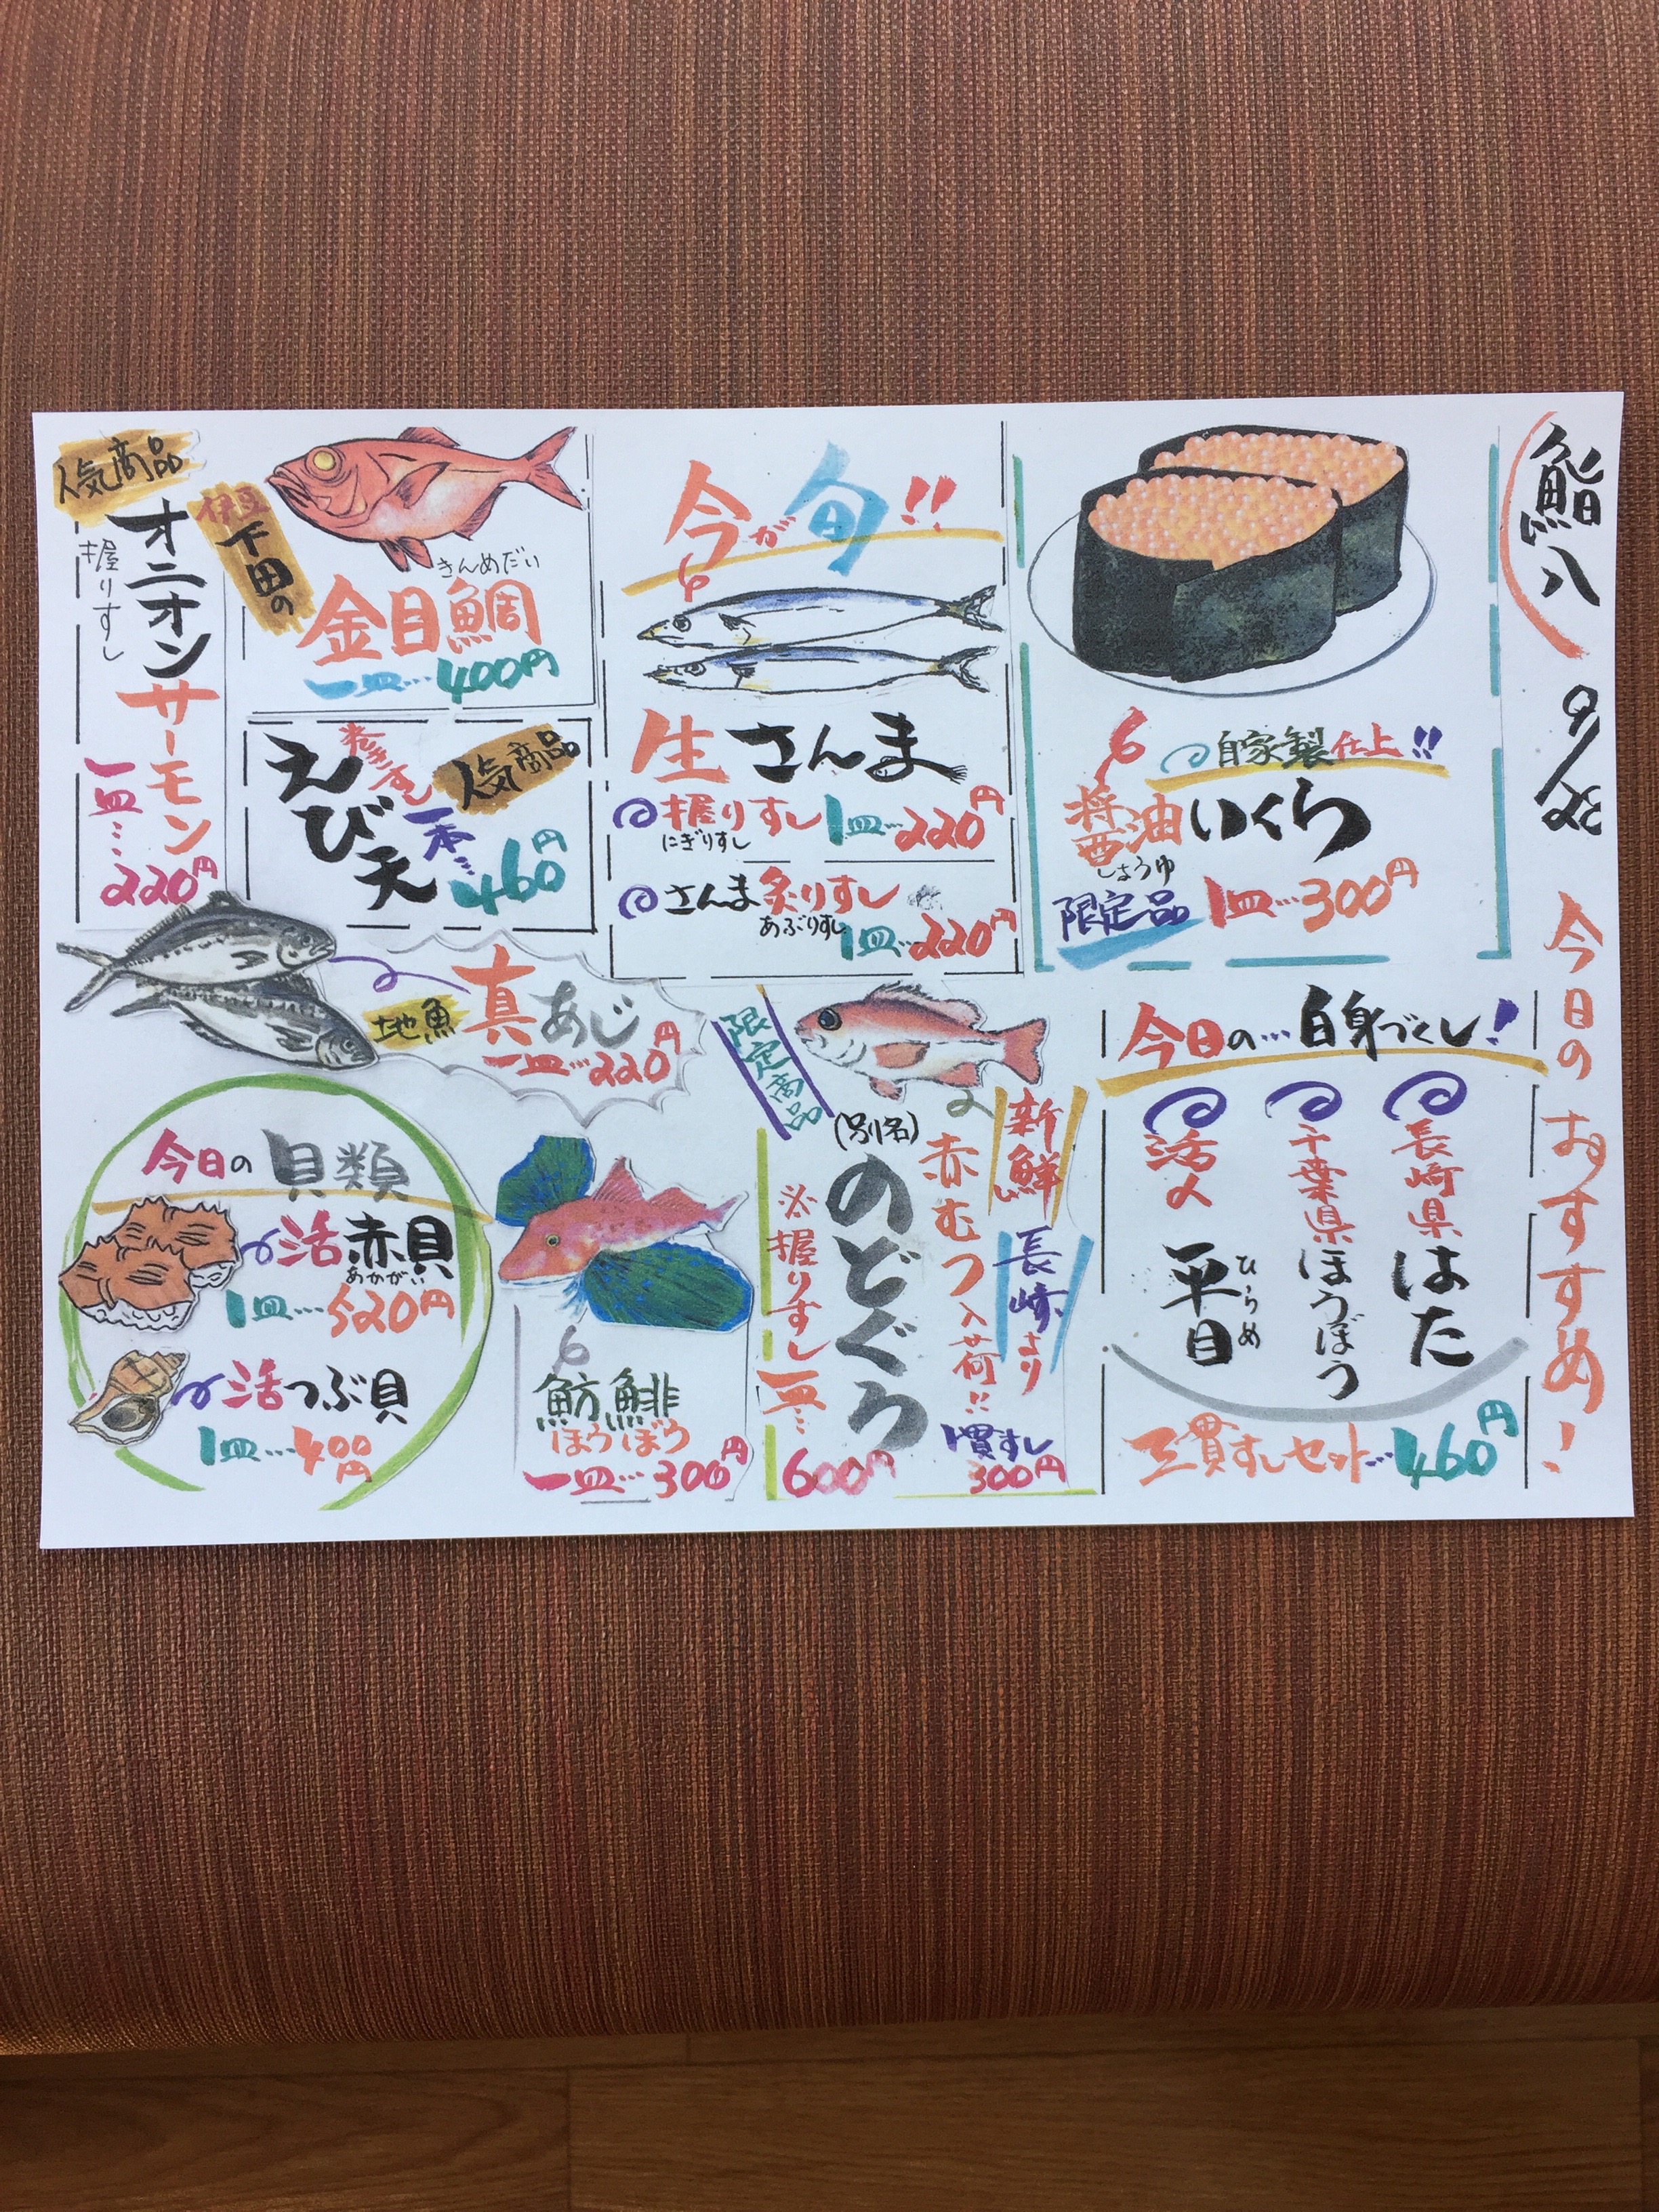 鮨八
9/28
今日のおすすめ!
自家製仕上!!
醤油いくら
しょうゆ
限定品 1皿…300円
今が旬!!
生さんま
握りすし 1皿…220円
にぎりすし
さんま炙りすし
あぶりすし
1皿…220円
伊豆
下田の
きんめだい
金目鯛
一皿…400円
人気商品
えび天
巻きすし
一本…
460円
人気商品
オニオン
サーモン
握りすし
一皿…
220円
今日の…白身づくし!
長崎県
はた
千葉県
ほうぼう
活〆
平目
ひらめ
三貫すしセット…460円
限定商品
新鮮
長崎より
赤むつ入荷!!
(別名)
のどぐろ
※握りすし一皿…
600円
1貫すし
300円
地魚
真あじ
一皿…220円
魴鯡
ほうぼう
一皿…300円
今日の貝類
活赤貝
あかがい
1皿…520円
活つぶ貝
1皿…400円